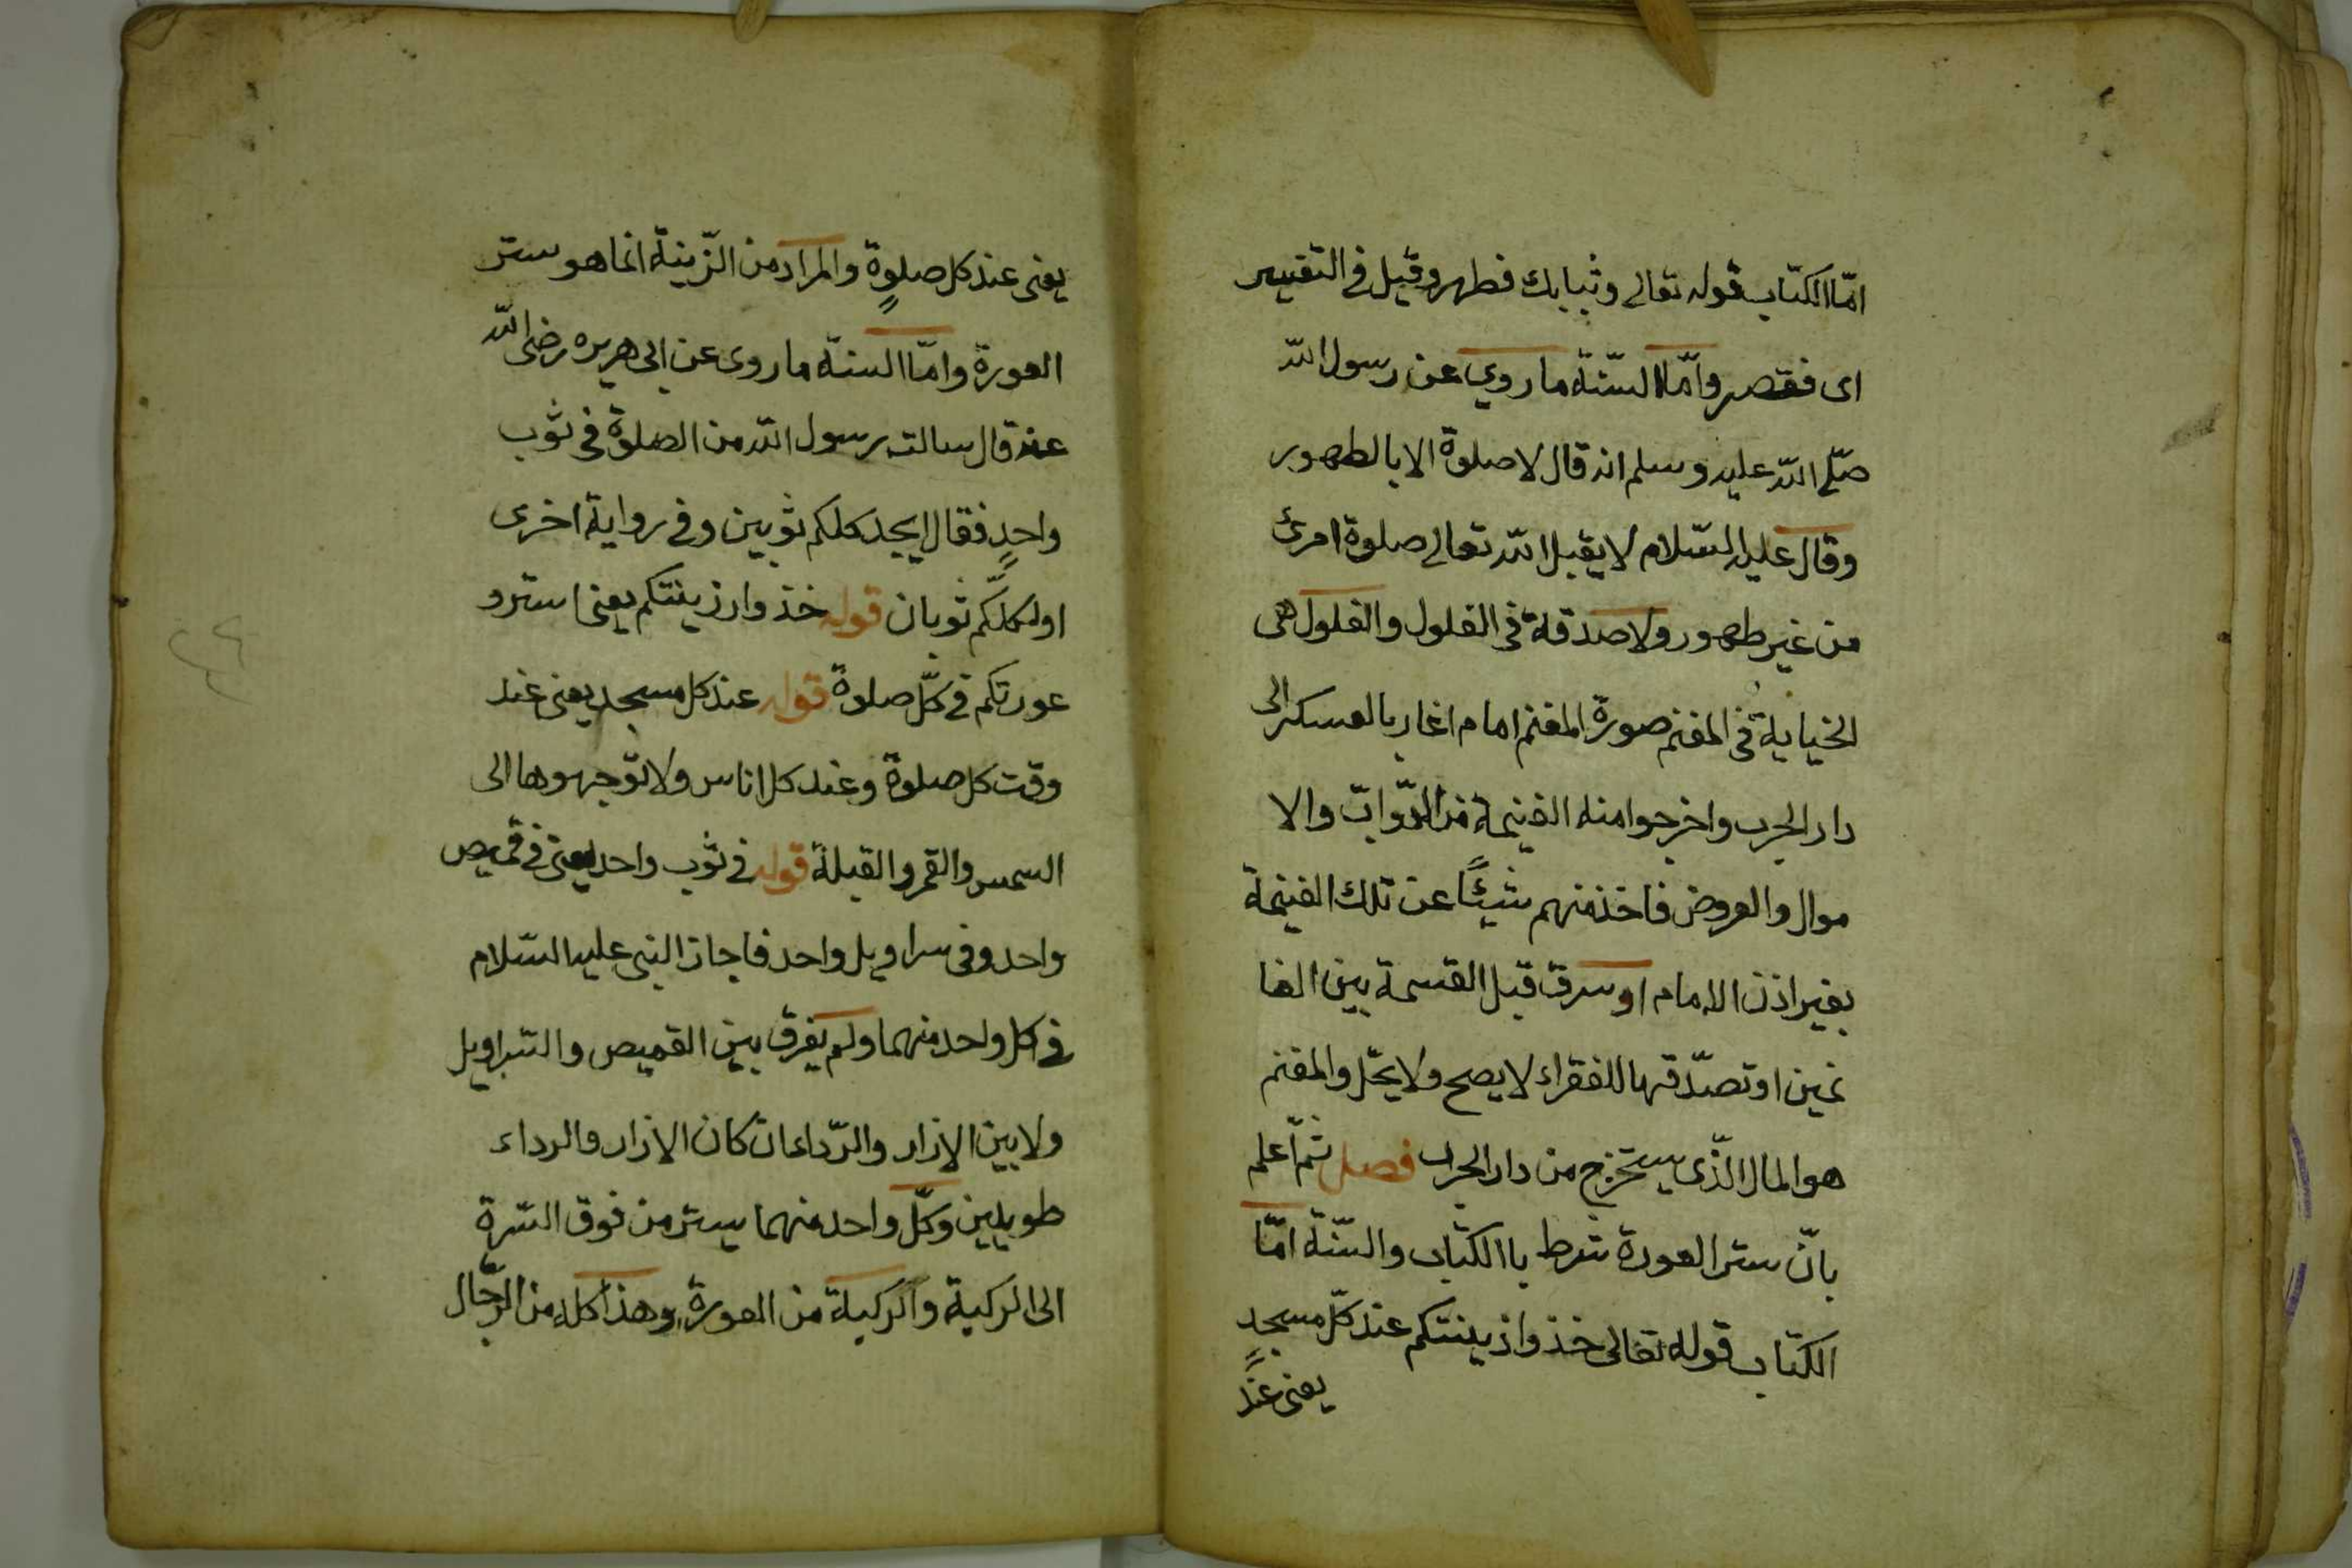 امّا الكتاب قوله تعالى وثيابك فطهر وقيل في التفسير
اى فقصر وامّا السّنة ما روي عن رسول الله
صلّى الله عليه وسلم انه قال لا صلوة الا بالطهور
وقال عليه السّلام لا يقبل الله تعالى صلوة امرئ
من غير طهور ولا صدقة فى الغلول والغلول هى
الخياية فى المغنم صورة المغنم امام اغار بالعسكر الى
دار الحرب واخرجوا منه الغنيمة من الدّوابّ والا
موال والعروض فاخذ منهم شيئًا عن تلك الغنيمة
بغير اذن الامام او سرق قبل القسمة بين الغا
نمين او تصدّق بها للفقراء لا يصح ولا يحلّ والمغنم
هو المال الذّى يستخرج من دار الحرب فصل ثمّ اعلم
بانّ ستر العورة شرط باالكتاب والسّنّة امّا
الكتاب قوله تعالى خذوا زينتكم عند كلّ مسجدٍ
يعنى عند
يعنى عند كل صلوةٍ والمراد من الزّينة انما هو ستر
العورة وامّا السنة ما روى عن ابى هريره رضى الله
عنه قال سالت رسول الله من الصلوة فى ثوب
واحدٍ فقال ايجد كلكم ثوبين وفى رواية اخرى
اولكلّكم ثوبان قوله خذوا زينتكم يعنى استرو
عورتكم فى كلّ صلوة قوله عند كل مسجد يعنى عند
وقت كل صلوة وعند كل اناس ولا توّجهوها الى
السمس والقمر والقبلة قوله فى ثوب واحد يعنى فى قميص
واحد وفى سراويل واحد فاجاز النبى عليه السّلام
فى كل واحد منهما ولم يفرق بين القميص والسّراويل
ولا بين الازار والرّداء ان كان الازار والرداء
طويلين وكلّ واحد منهما يستر من فوق السّرة
الى الركبة والركبة من العورة وهذا كله من الرّجال